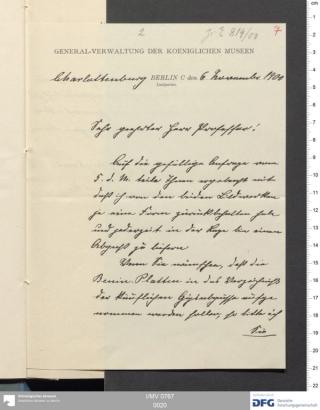 2
J. E 819/00
7
GENERAL-VERWALTUNG DER KOENIGLICHEN MUSEEN
Charlottenburg BERLIN C den 6 November 1900
Lustgarten.
Sehr geehrter Herr Professor!
Auf die gefällige Anfrage vom
5. d. M. teile Ihnen ergebenst mit
daß ich von den beiden Bildwerken
je eine Form zurückbehalten habe
und jederzeit in der Lage bin einen
Abguß zu liefern
Wenn Sie wünschen, daß die
Benin-Platten in das Verzeichniß
der käuflichen Gipsabgüsse aufge-
nommen werden sollen, so bitte ich
Sie
I/MV 0767
0020
DFG
Deutsche
Forschungsgemeinschaft